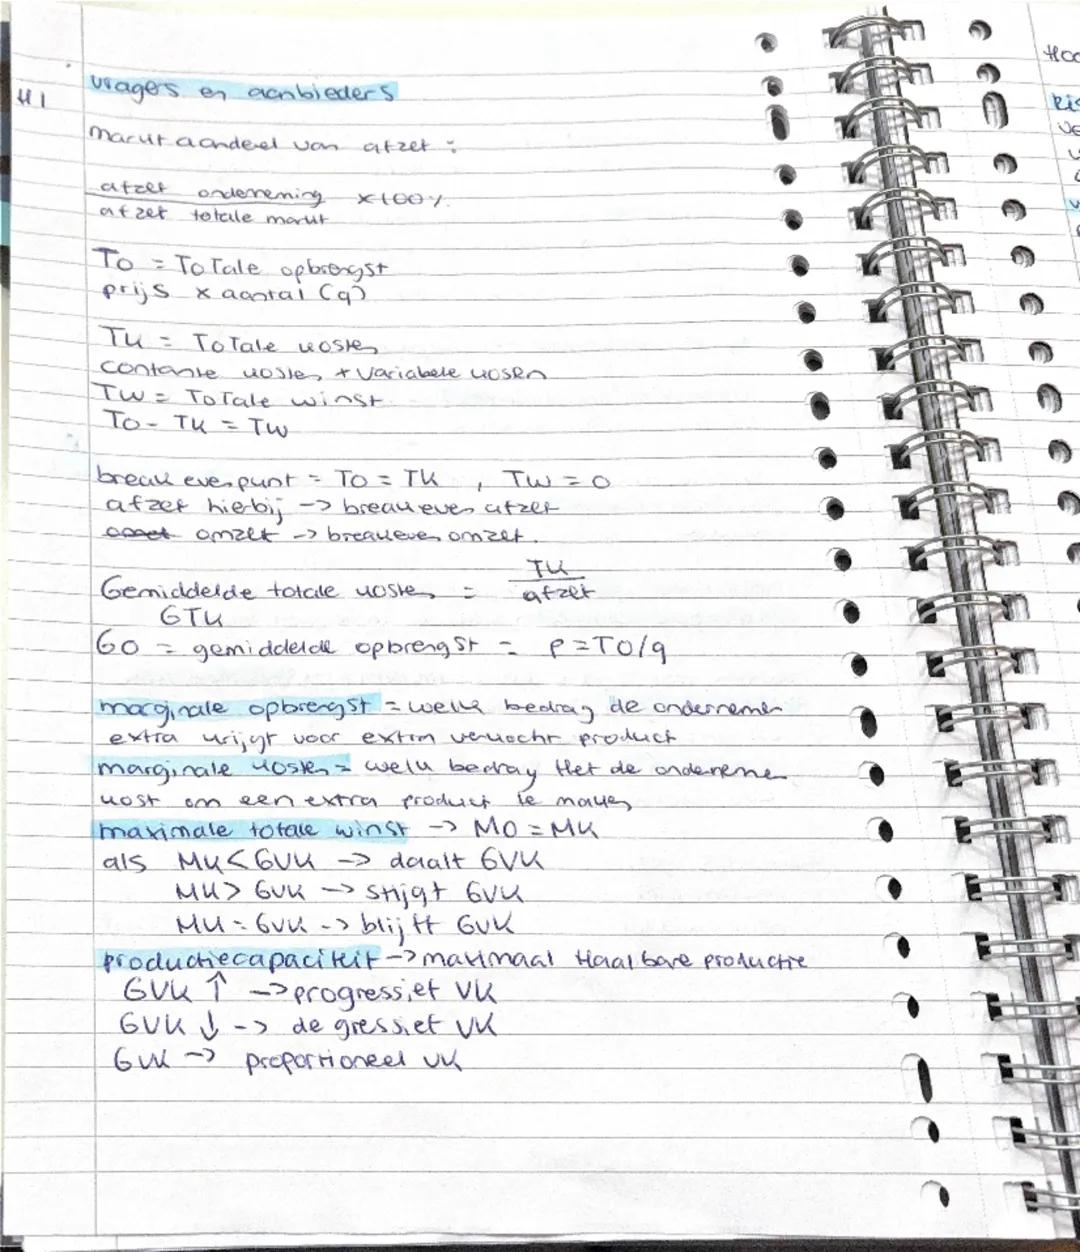 H1
vragers en aanbieders
marktaandeel van afzet :
afzet onderneming x100%
afzet totale markt
TO = ToTale opbrengst
prijs x aantal (q)
TK = ToTale kosten
constante kosten + variabele kosen
TW = ToTale winst
TO - TK = TW
break even punt = TO = TK , TW = 0
afzet hierbij -> breakeven afzet
omzet -> breakeven omzet.
Gemiddelde totale kosten = TK
afzet
GTK
GO = gemiddelde opbrengst = P = TO/q
marginale opbrengst = welk bedrag de ondernemer
extra krijgt voor extra verkocht product
marginale kosten = welk bedrag Het de ondernemer
kost om een extra product te maken
maximale totale winst -> MO = MK
als MK < GVK -> daalt GVK
MK > GVK -> stijgt GVK
MK = GVK -> blijft GVK
productiecapaciteit -> maximaal Haalbare productie
GVK ↑ -> progressief VK
GVK ↓ -> degressief VK
GVK -> proportioneel VK
Hoo
Ris
ve